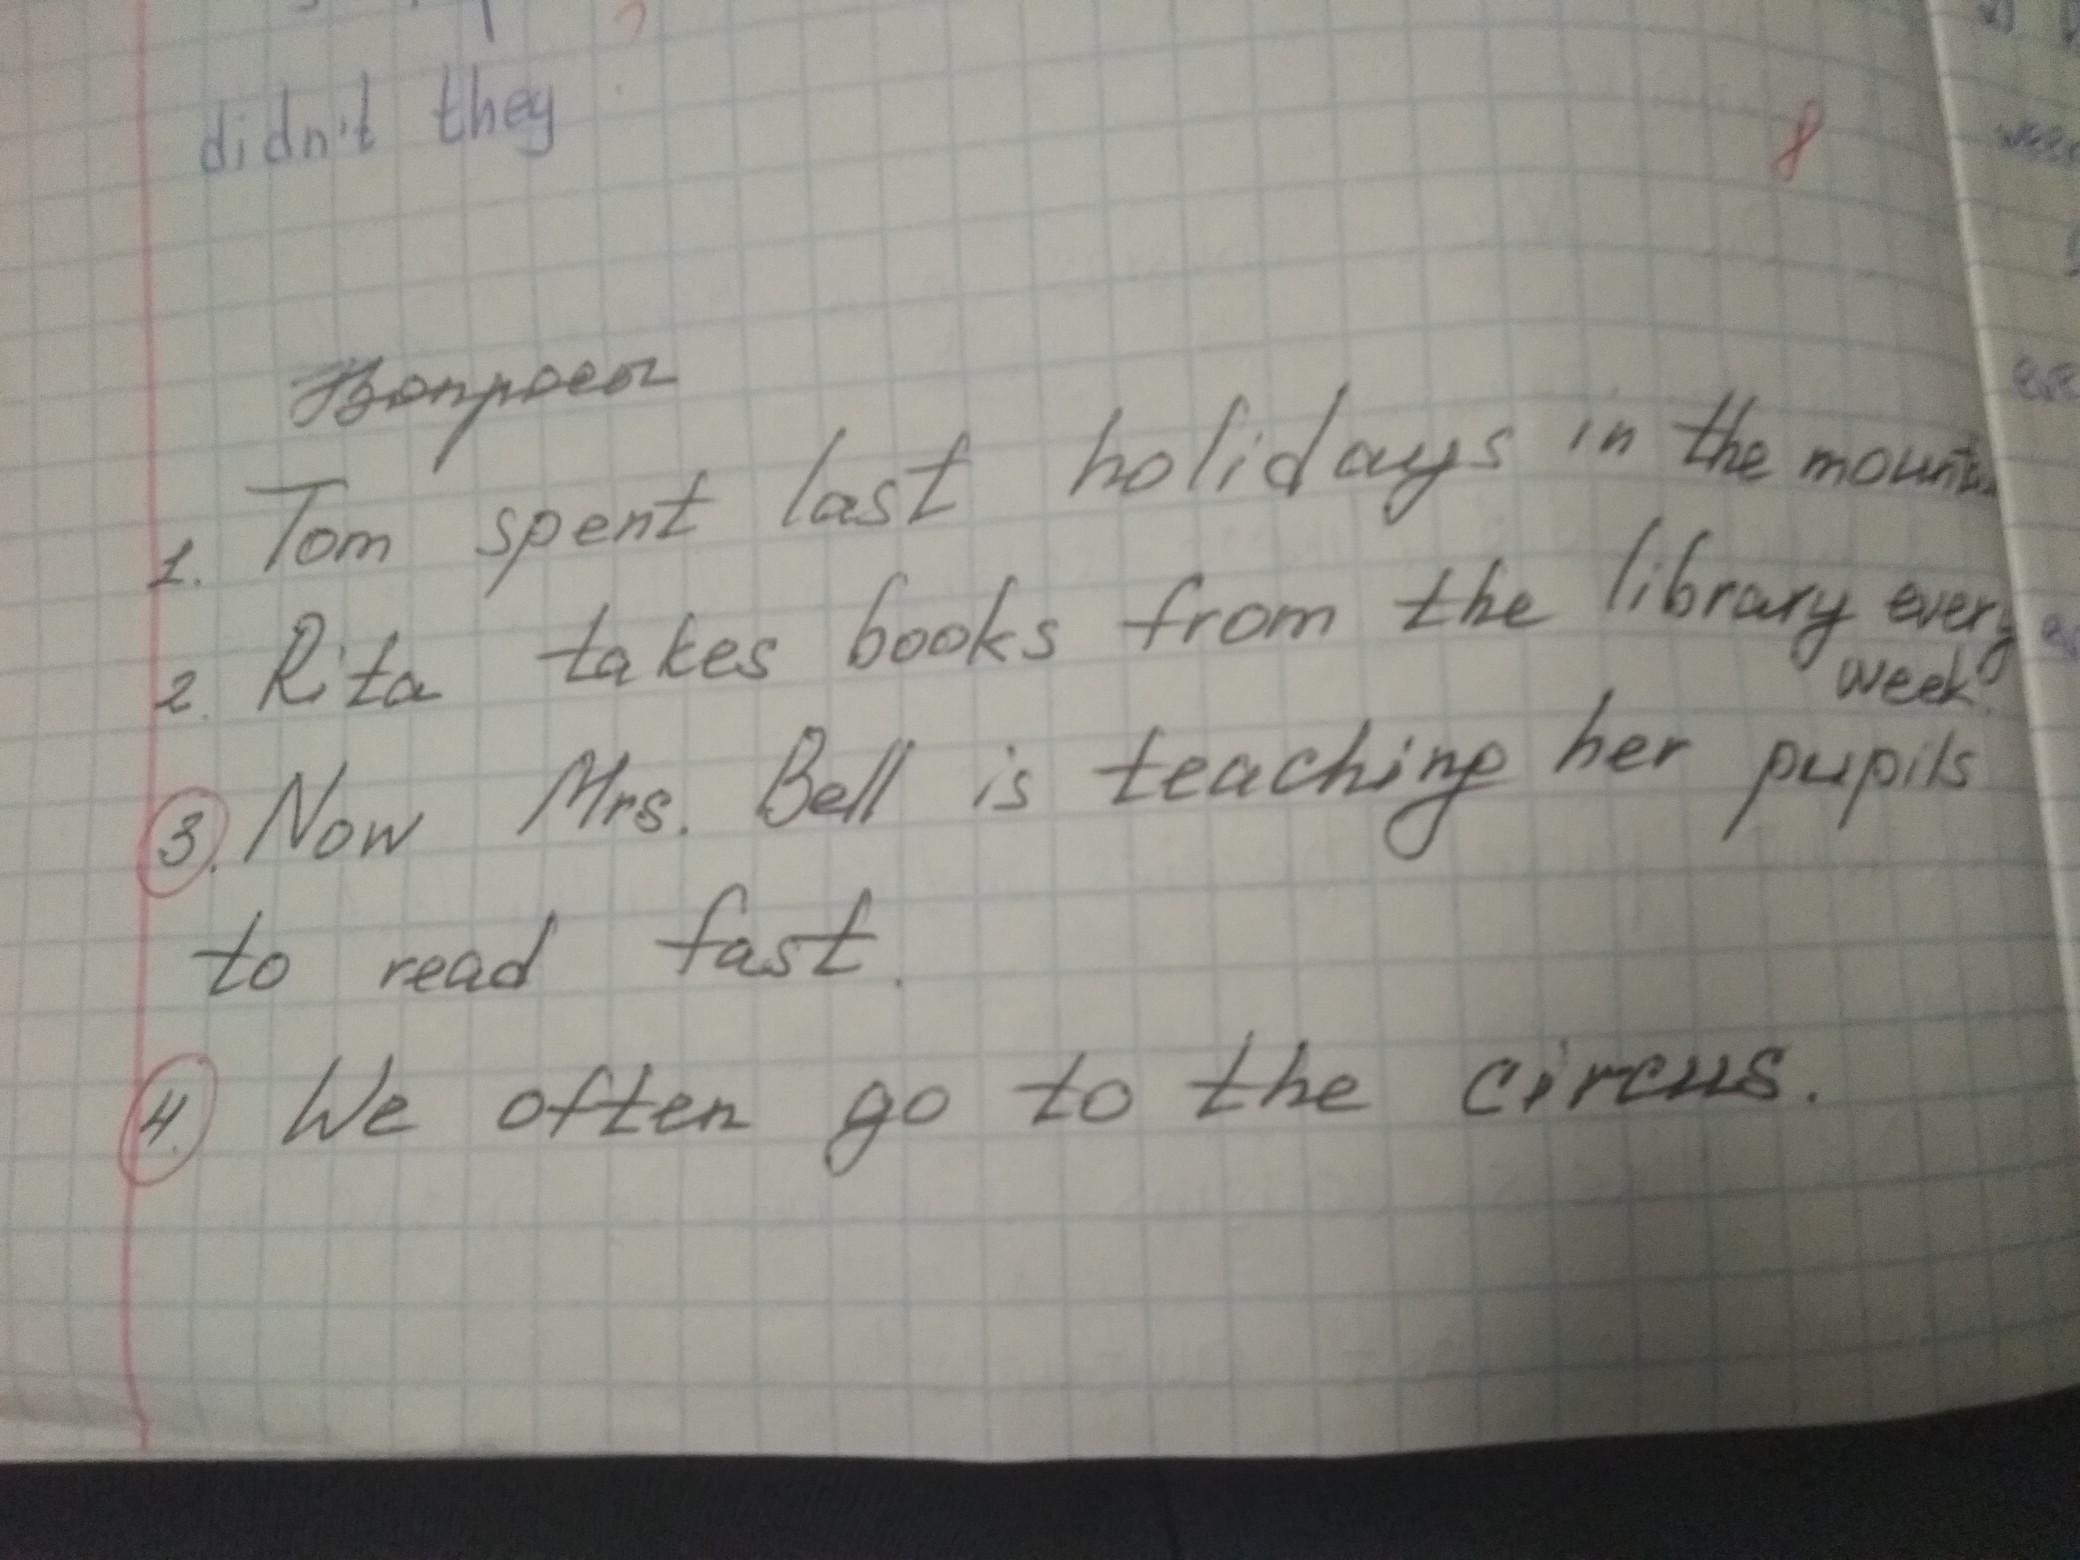 didn't they ?
8
Вопросы
1. Tom spent last holidays in the
2. Rita takes books from the library every
week.
3. Now Mrs. Bell is teaching her pupils
to read fast.
4. We often go to the circus.